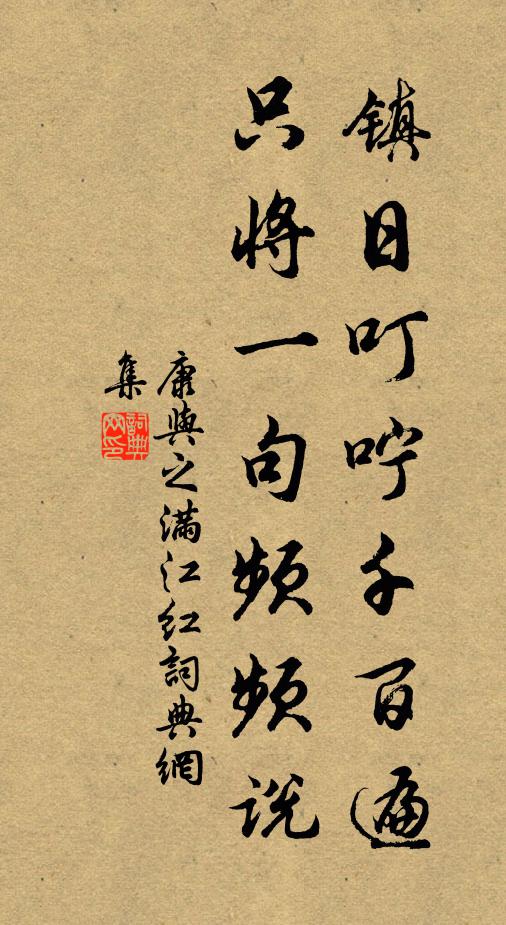 镇日叮咛千百遍
只将一句频频说
康與之滿江紅詞典網
集
詞典網印